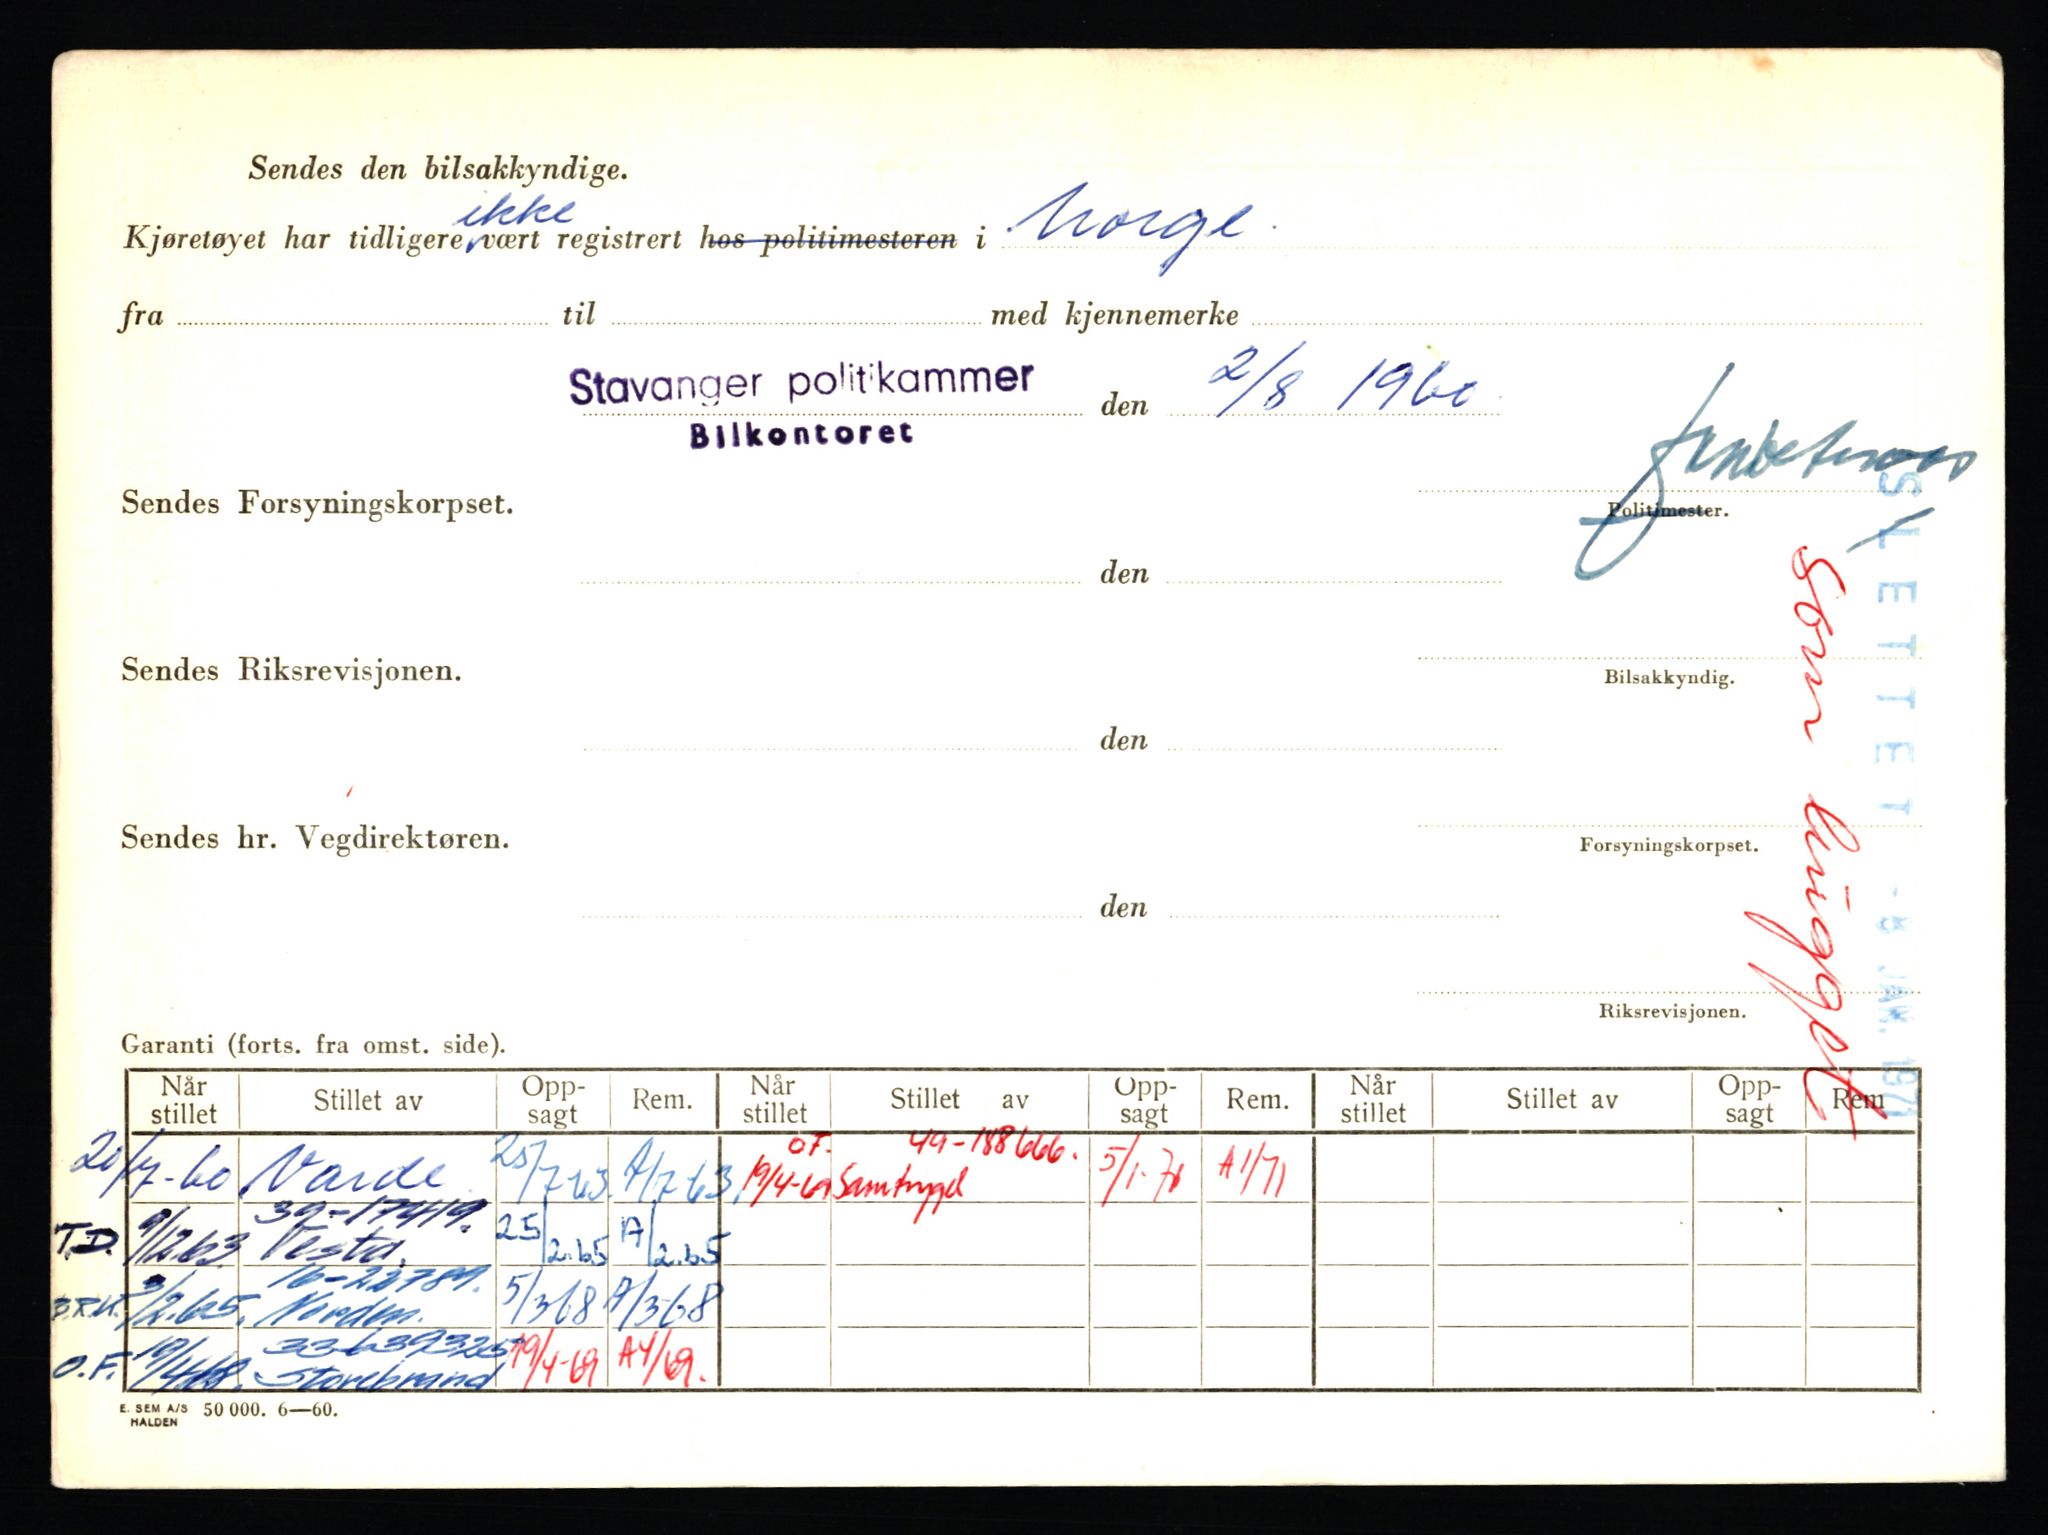 Sendes den bilsakkyndige.
ikke
Kjøretøyet har tidligere vært registrert hos politimesteren i Norge.
fra til med kjennemerke
Stavanger politikammer den 2/8 1960.
Bilkontoret
Sendes Forsyningskorpset.
Politimester.
den
Sendes Riksrevisjonen.
Bilsakkyndig.
den
Sendes hr. Vegdirektøren.
Forsyningskorpset.
den
Riksrevisjonen.
SLETTET - 8 JAN. 1971
Som hugget
Garanti (forts. fra omst. side).
Når stillet Stillet av Opp-sagt Rem. Når stillet Stillet av Opp-sagt Rem. Når stillet Stillet av Opp-sagt Rem
O.F. 49-188666.
20/7-60 Varde 25/7 63 A/7 63 19/4-69 Samtrygd 5/1-71 A1/71
39-17419.
T.D. 9/12.63. Vesta. 25/2.65 A/2.65
16-22789.
B.R.K. 3/2.65. Norden. 5/3 68 A/3-68
33639325
O.F. 19/4.68. Storebrand 19/4-69 A4/69.
E. SEM A/S HALDEN 50 000. 6—60.